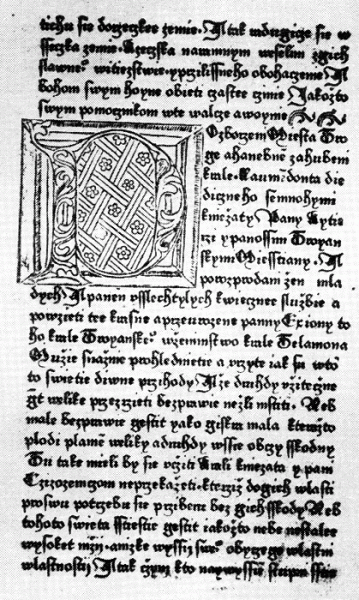 tichu sie dorzegkee zemie. A tak wdrugige sie w
ssegka zemie. Rzegska naramnym weselim zgich
slawne witiezstwie. yprzilissneho obohaczenie A
bohom swym hoyne obieti czastee czinie Jakozto
swym pomocznikom wte walcze awoynie
Ozborzem Miesta Tro
ge ahanebne zahubem
krale. Laumedonta die
digneho sem mnohymi
kniezaty Pany Rytie
rze y panossim Troyan
skymi Miesstiany. A
porozprodam zen mla
dych A panen vsslechtylych kwieczne sluzbie a
powzieti tee krasne a przeurozene panny Exiony to
ho krale Troyanske wzeminstwo krale Thelamona
Muzie snazmie prohlednietie a vzrzyte jak su wto
to swietie diwne przihody A ze druhdy vzitecznie
gt welike przezrzieti bezprawie nezli mstiti. Neb
male bezprawie gestit yako giskra mala kterazto
plodi plamen weliky a druhdy wssie obczy sskodny
Tu take mieli by sie vziti Krali kniezata y pani
Czizozemczom neprzekazeti. kterziz dogich wlasti
proswu potrzebu sie prziberu bez gich sskody Neb
tohoto swieta sstiestie gestit jakozto nebe nestalee
wysokee mzij. anizke wyssij swe obyczege wlastni
wlastnostij A tak czym kto naywyssie stupni sstie